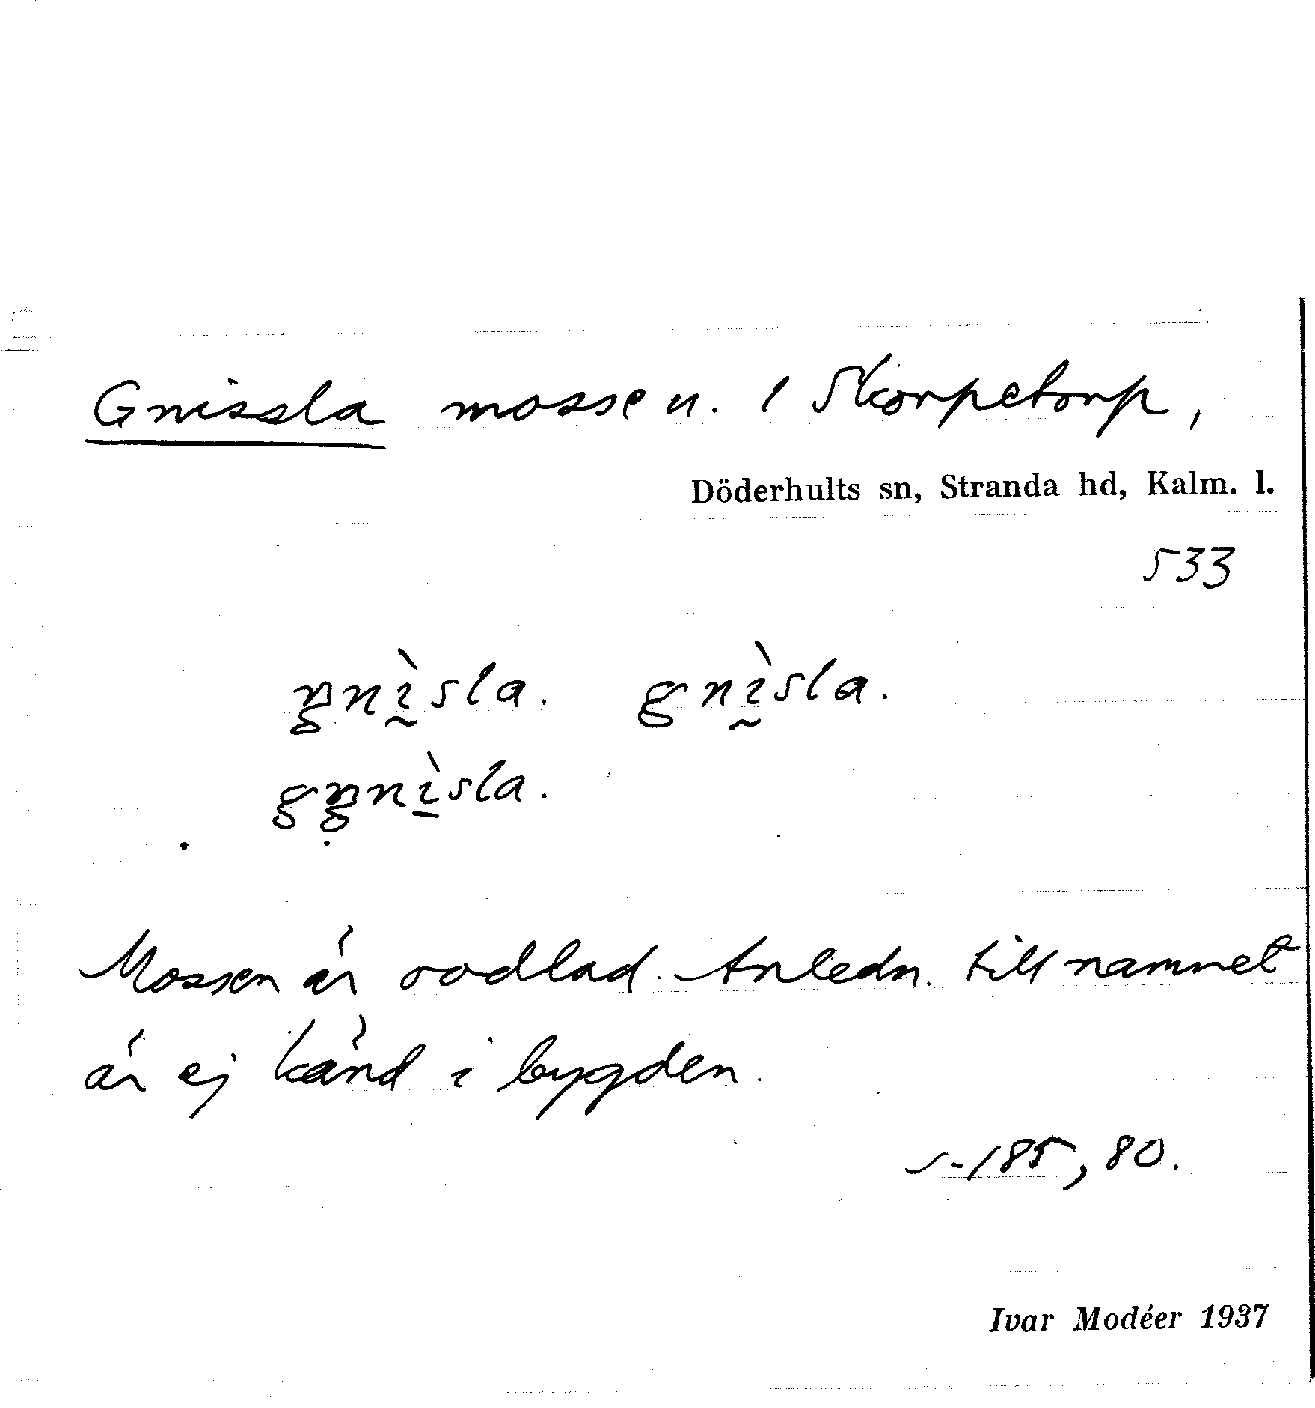 Gnissla mosse u. 1 Skorpetorp,
Döderhults sn, Stranda hd, Kalm. l.
533
gnìsla.
Mossen är oodlad. Anledn. till namnet
är ej känd i bygden.
s-185, 80.
Ivar Modéer 1937